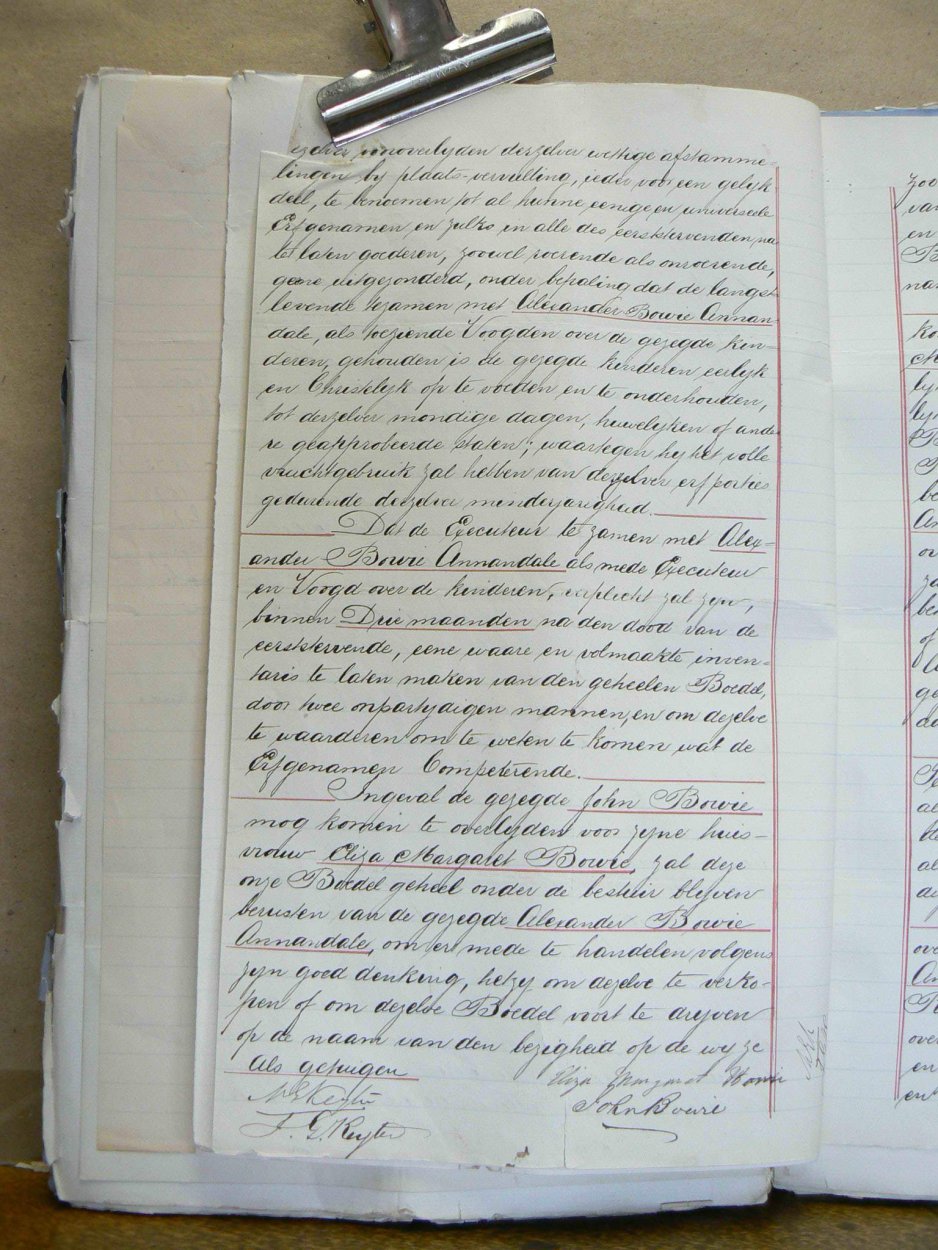 TAIWAN
vooroverlyden derzelver wettige afstamme-
lingen by plaats-vervulling, ieder voor een gelyk
deel, te benoemen tot al hunne eenige en universeele
Erfgenamen en zulks in alle des eerststervenden na
te laten goederen, zoowel roerende als onroerende,
geene uitgezonderd, onder bepaling dat de langst
levende tezamen met Alexander Bowie Annan-
dale, als toeziende Voogden over de gezegde kin-
deren, gehouden is de gezegde kinderen eerlyk
en Christelyk op te voeden en te onderhouden,
tot derzelver mondige dagen, huwelyken of ande-
re geapprobeerde staten; waartegen hy het volle
vruchtgebruik zal hebben van dezelver erfporties
gedurende derzelver minderjarigheid.
Dat de Executeur te zamen met Alex-
ander Bowie Annandale als mede Executeur
en Voogd over de kinderen, verplicht zal zyn,
binnen Drie maanden na den dood van de
eerststervende, eene waare en volmaakte inven-
taris te laten maken van den geheelen Boedel,
door twee onpartydigen mannen, en om dezelve
te waarderen om te weten te komen wat de
Erfgenamen Competerende.
Ingeval de gezegde John Bowie
mog komen te overlyden voor zyne huis-
vrouw Eliza Margaret Bowie, zal deze
onze Boedel geheel onder de bestuur blyven
berusten van de gezegde Alexander Bowie
Annandale, om er mede te handelen volgens
zyn goed denking, hetzy om dezelve te verko-
pen of om dezelve Boedel voort te dryven
op de naam van den bezigheid op de wyze
Als getuigen
Eliza Margaret Bowie
John Bowie
F. G. Keyter
zoo
van
en
na
ko
by
be
An
ov
be
of
ge
al
al
ove
An
ove
en
en